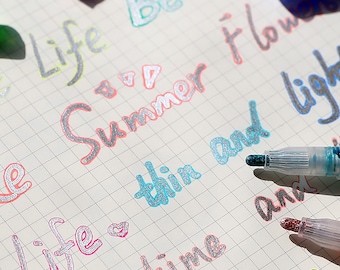 Life Be
Summer Flower
thin and light
Life time and